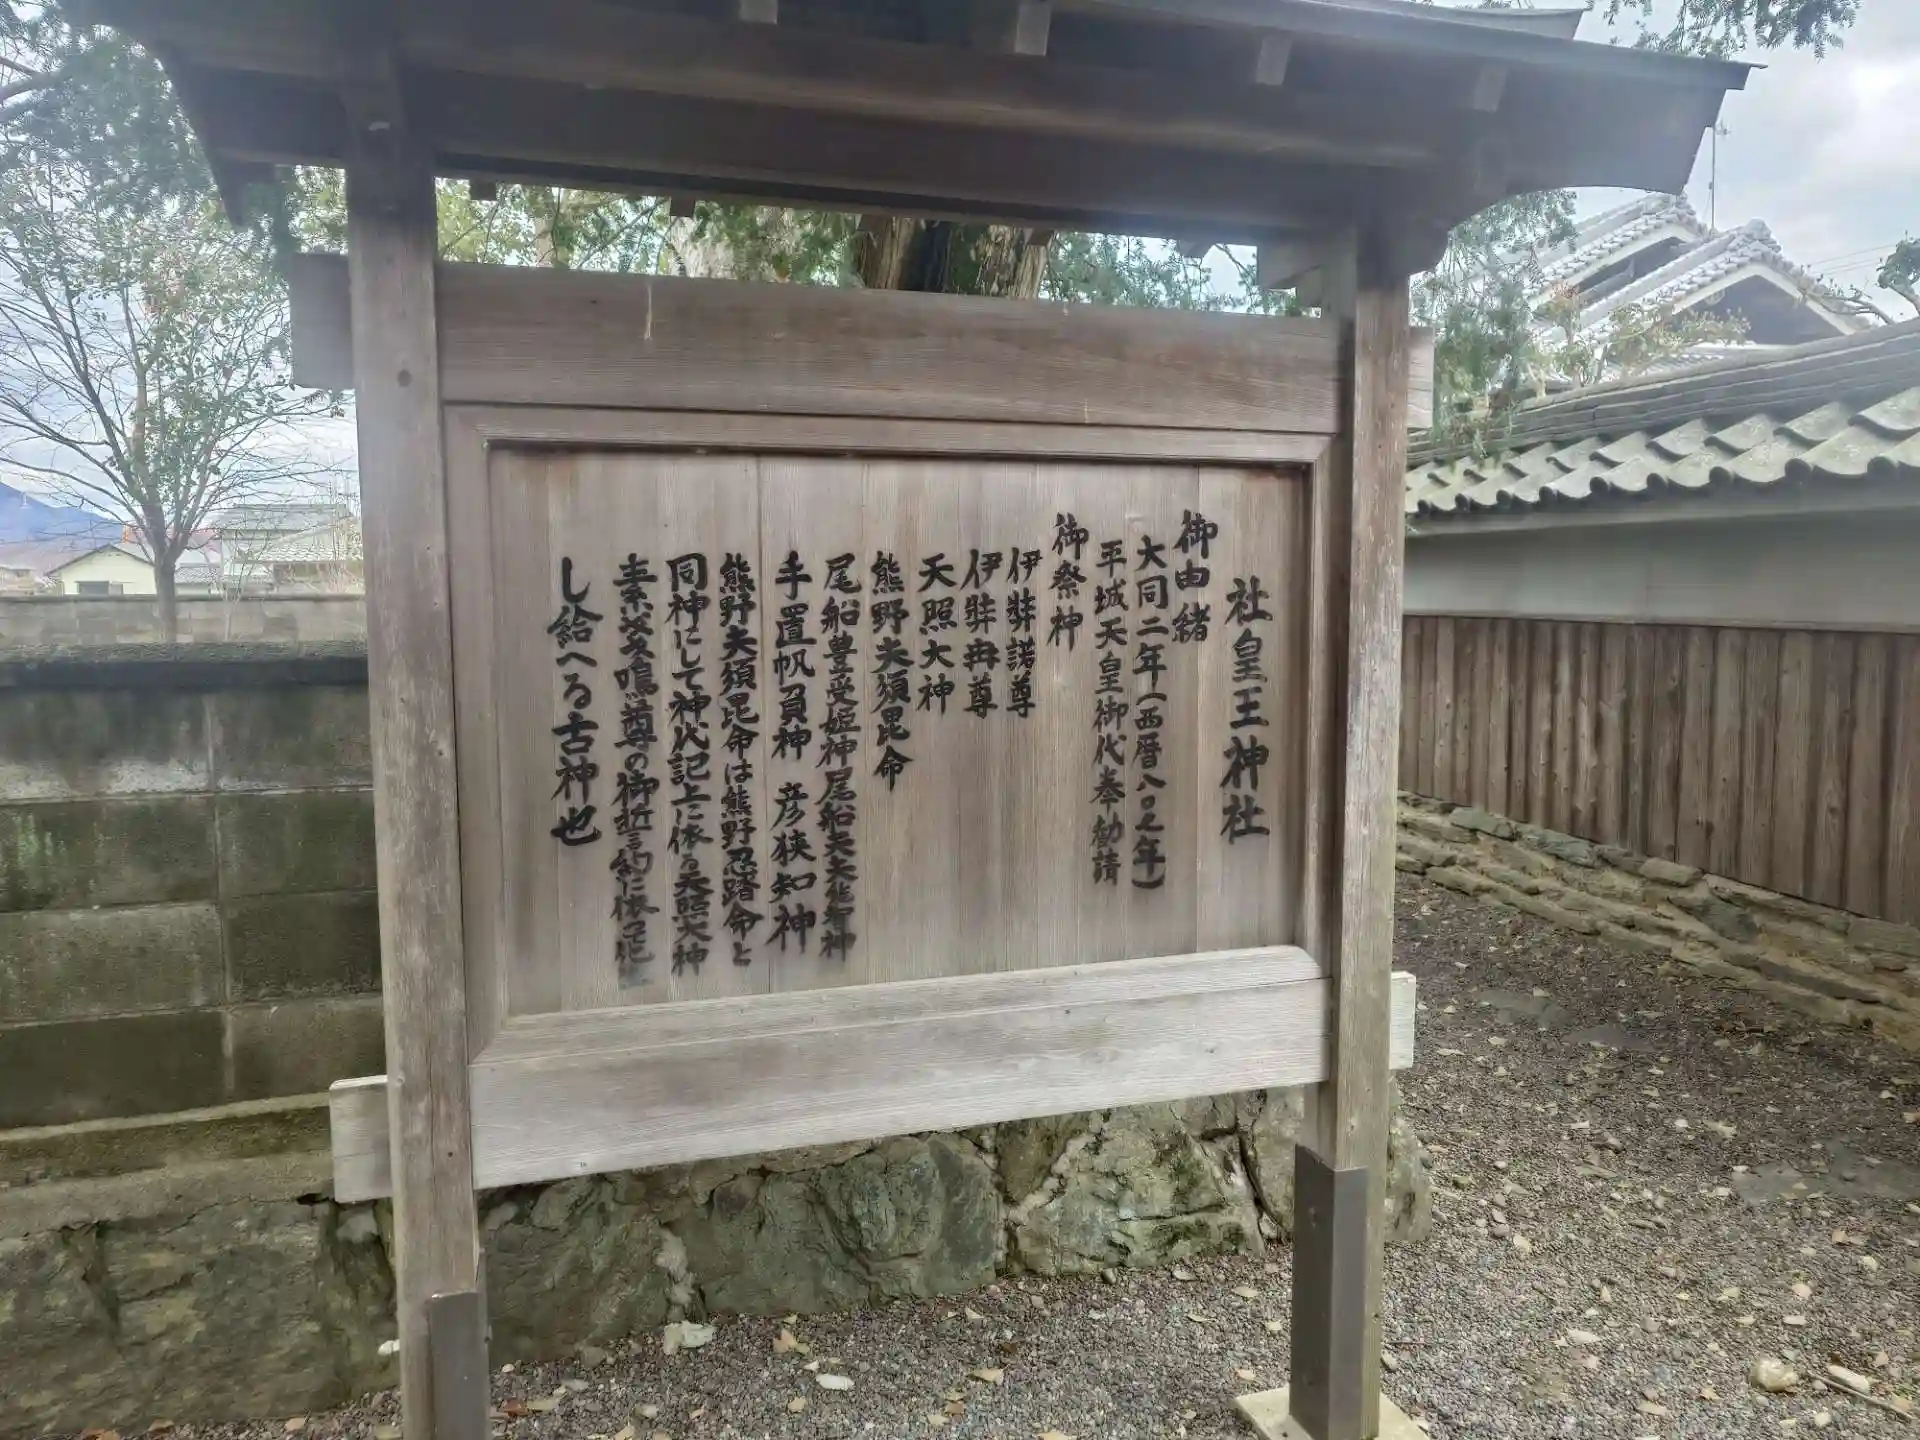 社皇王神社
御由緒
大同二年(西暦八〇七年)
平城天皇御代奉勧請
御祭神
伊弉諾尊
伊弉冉尊
天照大神
熊野夫須毘命
尾船豊受姫神尾船
手置帆負神 彦狭知神
熊野夫須毘命は熊野忍蹈命と
同神にして神代記上に依る天照大神
素戔嗚尊の御誓約に依つて化
し給へる古神也